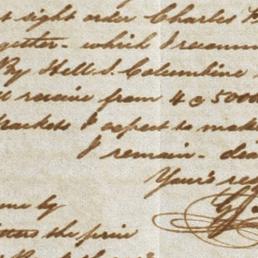 t sight order Charles
gether - which I recomm
By Hell. S. Columbine
l receive from 4 @ 5000
brackets I expect to make
I remain - dea
Your's res
me by
the price